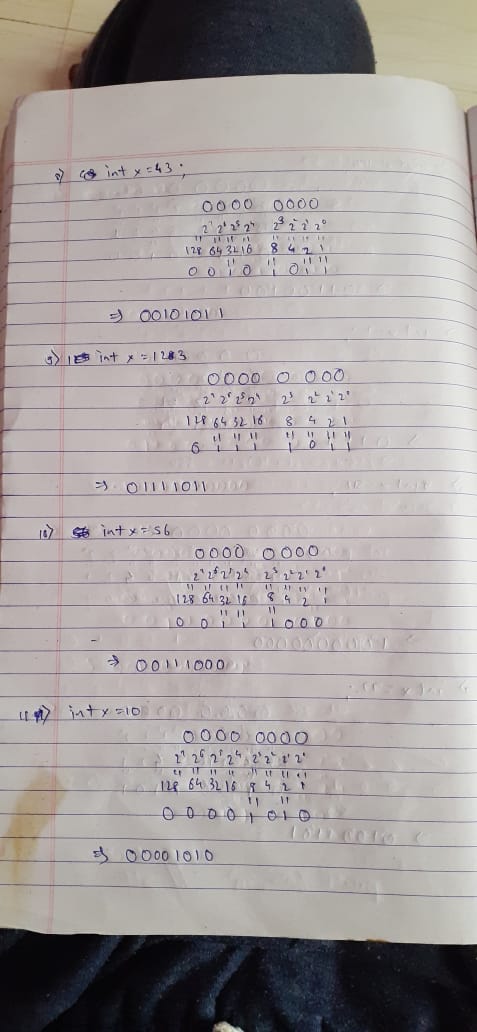 8) int x=43;
0000 0000
2⁷ 2⁶ 2⁵ 2⁴ 2³ 2² 2¹ 2⁰
128 64 32 16 8 4 2 1
0 0 1 0 1 0 1 1
⇒ 00101011
9) int x=123
0000 0 000
2⁷ 2⁶ 2⁵ 2⁴ 2³ 2² 2¹ 2⁰
128 64 32 16 8 4 2 1
0 1 1 1 1 0 1 1
⇒ 01111011
10) int x=56
0000 0000
2⁷ 2⁶ 2⁵ 2⁴ 2³ 2² 2¹ 2⁰
128 64 32 16 8 4 2 1
0 0 1 1 1 0 0 0
⇒ 00111000
11) int x=10
0000 0000
2⁷ 2⁶ 2⁵ 2⁴ 2³ 2² 2¹ 2⁰
128 64 32 16 8 4 2 1
0 0 0 0 1 0 1 0
⇒ 00001010